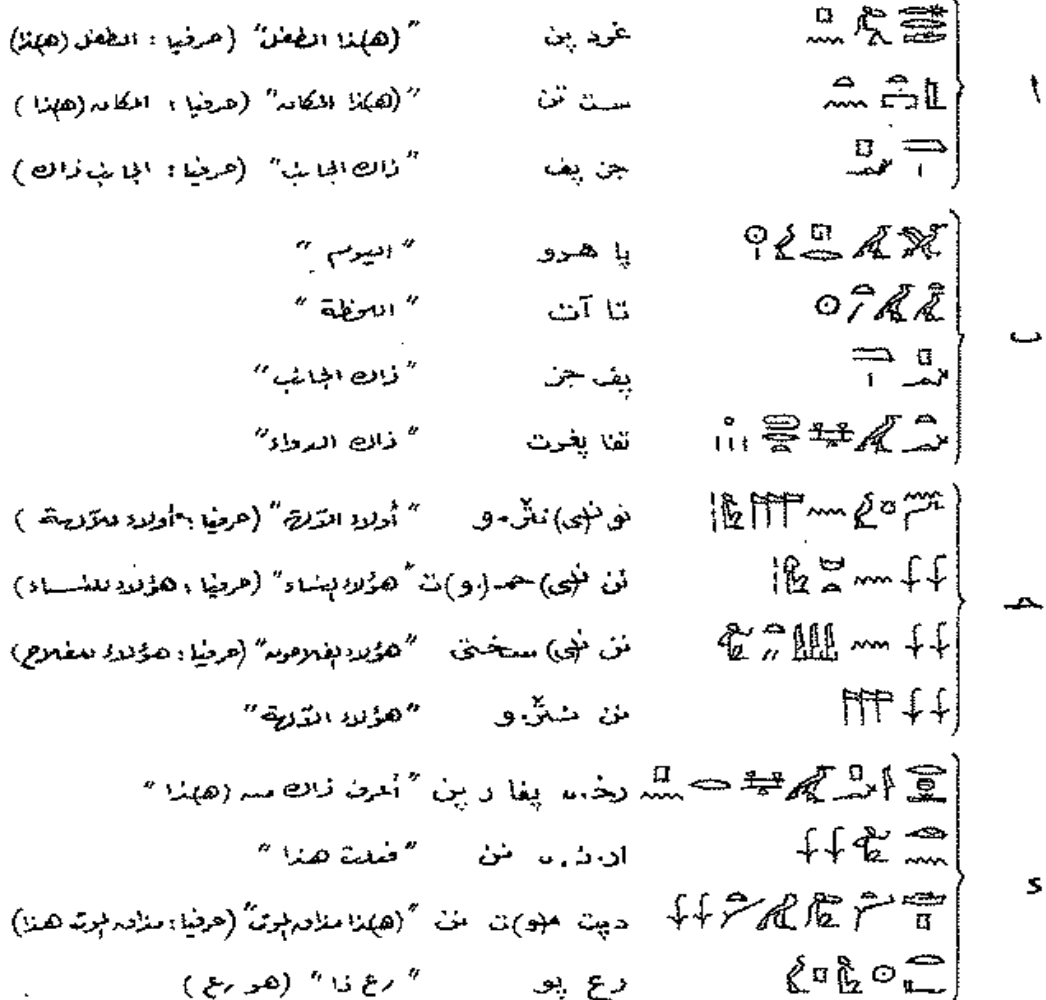 ا
غرد پن "(ه)ذا الطفل" (حرفيا : الطفل (ه)ذا)
ست تن "(ه)ذا المكان" (حرفيا : المكان (ه)ذا)
جز پف "ذاك الجانب" (حرفيا : الجانب ذاك)
ب
پا هرو "اليوم"
تا آت "اللحظة"
پف جز "ذاك الجانب"
تفا پغرت "ذاك الدواء"
ج
نو ن(ى) نثر.و "أولاء الآلهة" (حرفيا : أولاء للآلهة)
نن ن(ى) حمـ(.و)ت "هؤلاء النساء" (حرفيا : هؤلاء للنساء)
نن ن(ى) سختى "هؤلاء الفلاحون" (حرفيا : هؤلاء للفلاح)
نن نثر.و "هؤلاء الآلهة"
د
پفا ر پن "أعرف ذاك من (ه)ذا"
نن "فعلت هذا"
دپت م(و)ت نن "(ه)ذا مذاق الموت" (حرفيا : مذاق الموت هذا)
رع پو "رع ذا" (هو رع)